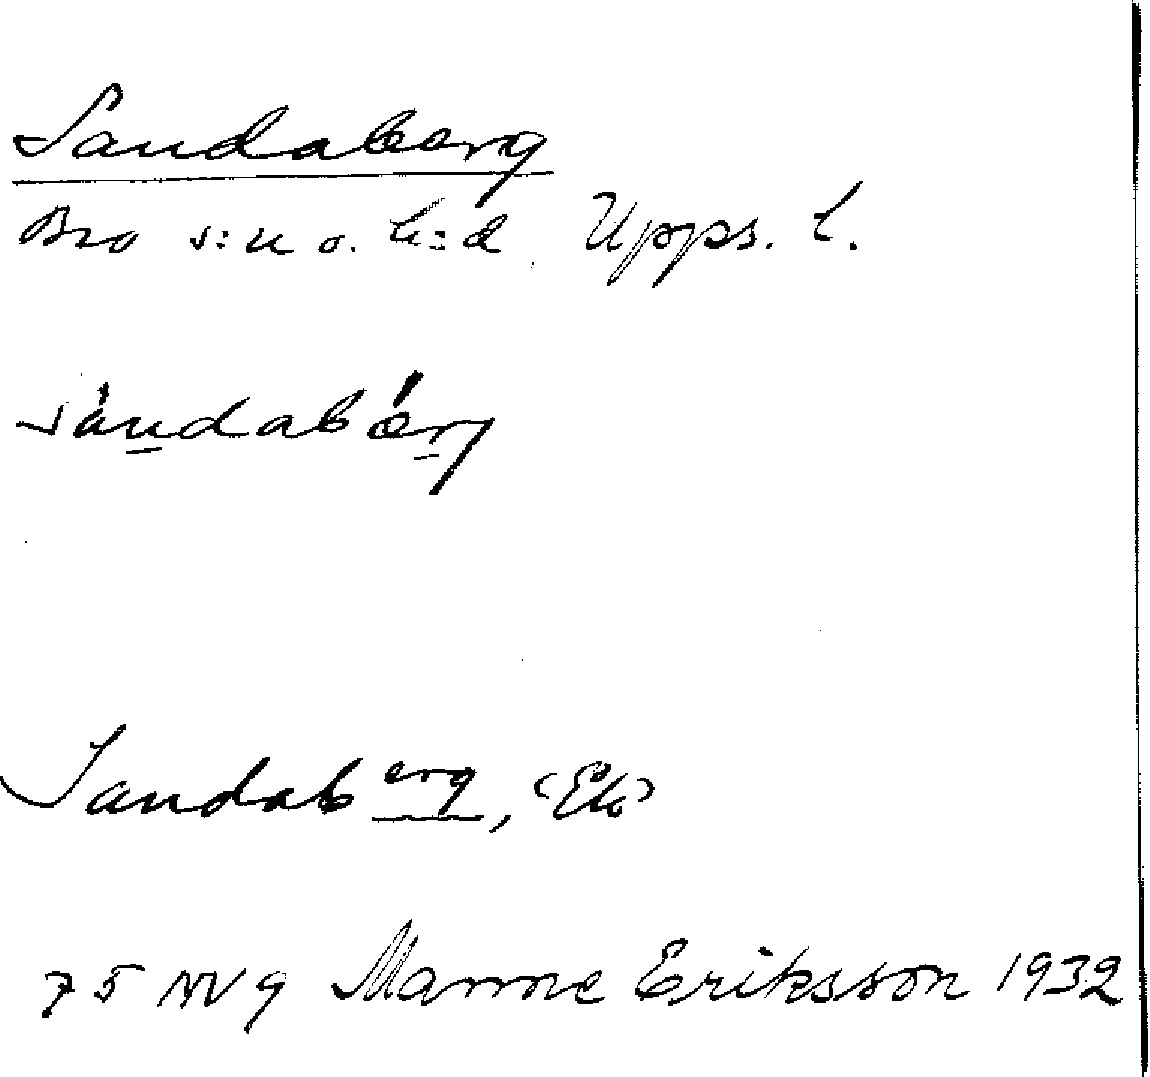 Sandaberg
Bro s:n o. h:d Upps. l.
sándabærg
Sandaberg, (Ek)
75 NV 9 Manne Eriksson 1932